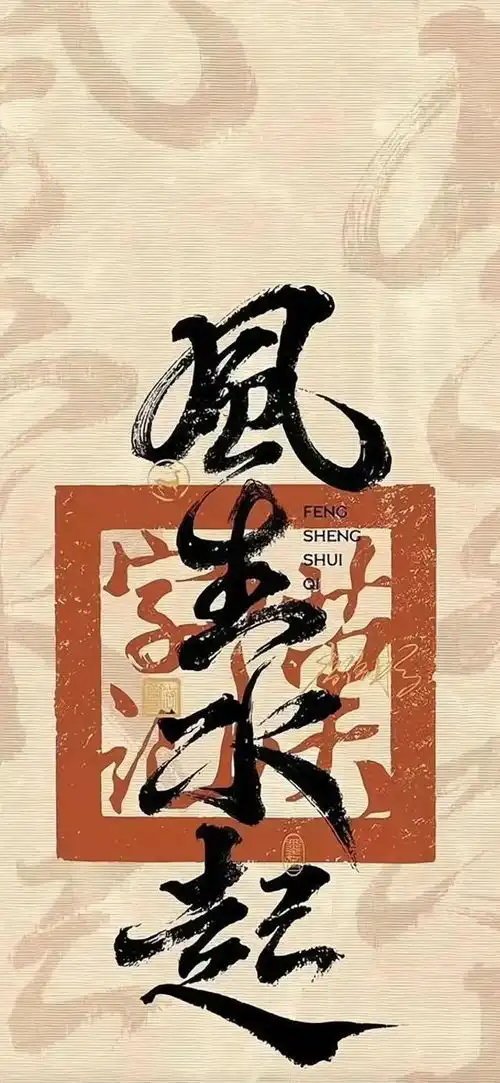 風生水起
FENG
SHENG
SHUI
QI